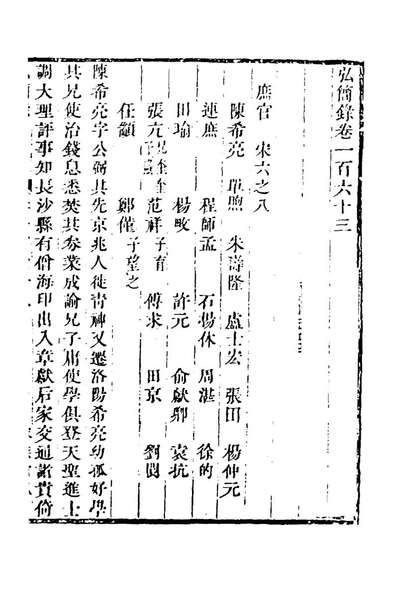 弘簡錄卷一百六十三
庶官 宋六之八
陳希亮 單煦 朱壽隆 盧士宏 張田 楊仲元
連庶 程師孟 石揚休 周湛 徐的
田瑜 楊畋 許元 俞獻卿 袁抗
張亢 兄奎 奎子燾 范祥 子育 傅求 田京 劉
任顓 鄭僅 子望之
陳希亮字公弼其先京兆人徙青神又遷洛陽希亮幼孤好學
其兄使治錢息悉焚其券業成諭兄子庸使學俱登天聖進士
調大理評事知長沙縣有僧海印出入章獻后家交通諸貴倚